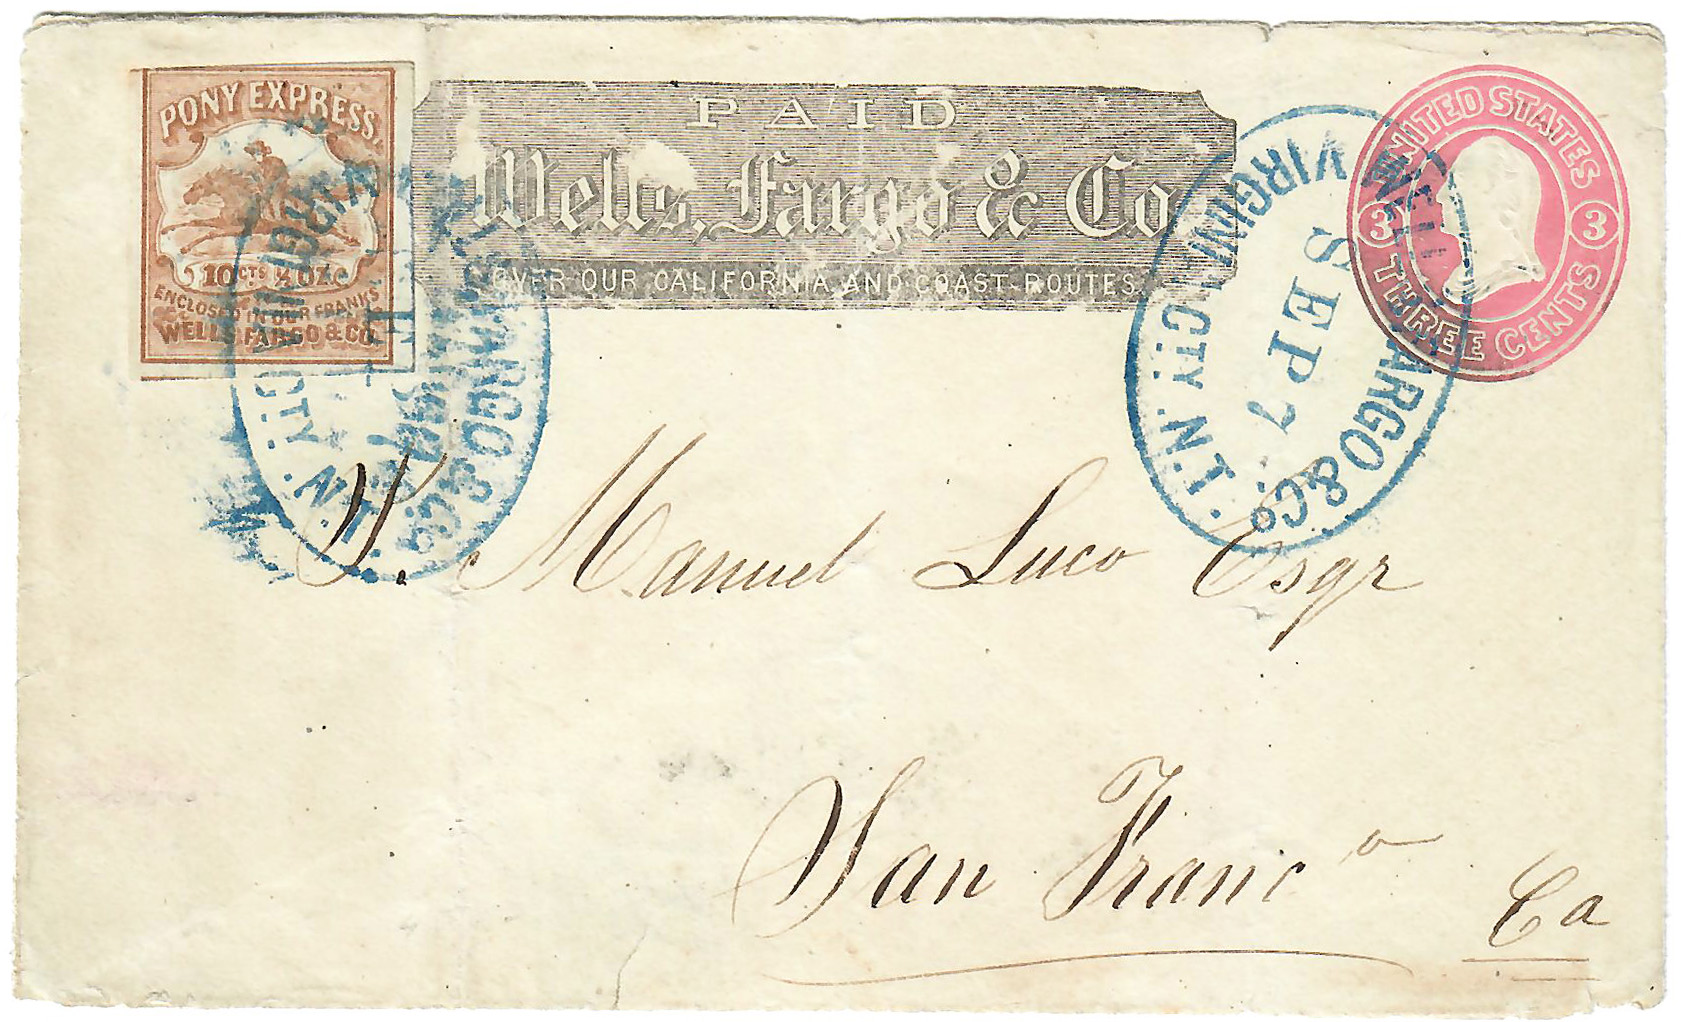 PONY EXPRESS.
10 CTS ½ OZ.
ENCLOSED IN OUR FRANKS
WELLS FARGO & CO.
PAID
Wells, Fargo & Co.
OVER OUR CALIFORNIA AND COAST ROUTES.
UNITED STATES
3 3
THREE CENTS
WELLS, FARGO & Co.
VIRGINIA CTY N.T.
WELLS, FARGO & Co.
SEP 7
VIRGINIA CTY N.T.
Manuel Luco Esqr
San Franco
Ca